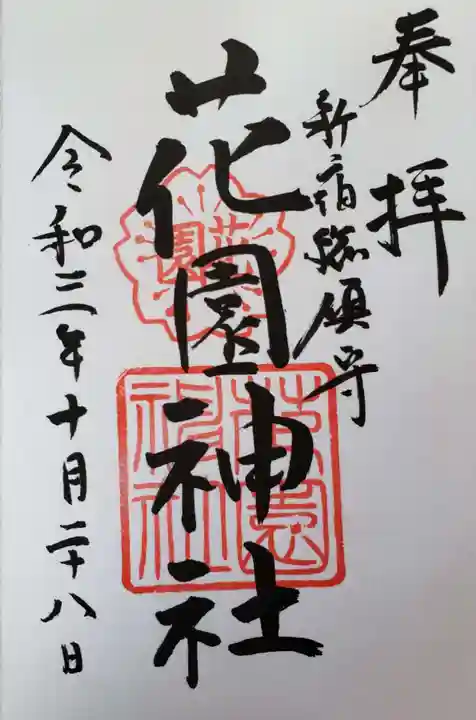 奉拝
新宿総鎮守
花園神社
花園
花園神社
令和三年十月二十八日